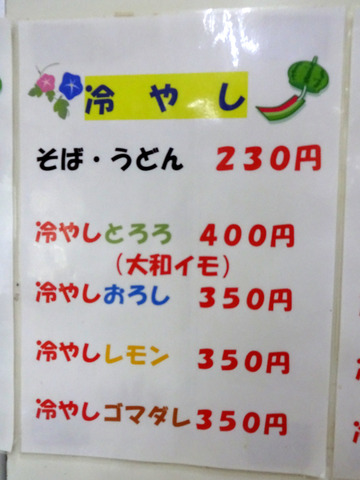 冷やし
そば・うどん 230円
冷やしとろろ 400円
(大和イモ)
冷やしおろし 350円
冷やしレモン 350円
冷やしゴマダレ350円